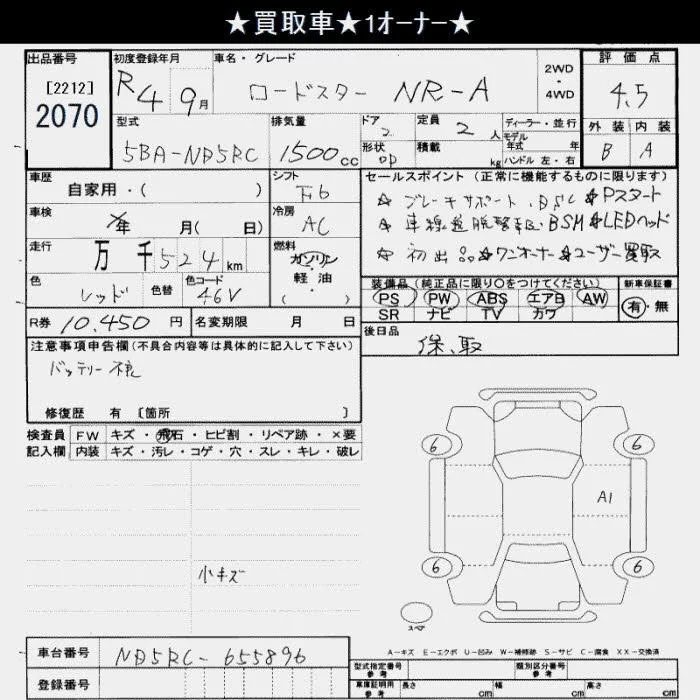 ★買取車★1オーナー★
出品番号 初度登録年月 車名・グレード 2WD・4WD 評価点
[2212] R4 9月 ロードスター NR-A 4.5
2070
型式 排気量 ドア 2 定員 2人 ディーラー・並行 外装 内装
モデル年式 年
5BA-ND5RC 1500cc 形状 OP 積載 kg ハンドル 左・右 B A
車歴 シフト セールスポイント(正常に機能するものに限ります)
自家用・( ) F6 ☆ブレーキサポート、BSC ☆Pスタート
車検 冷房 ☆車線逸脱警報、BSM ☆LEDヘッド
年 月( 日) AC ☆初出品 ☆ワンオーナー ☆ユーザー買取
走行 燃料
万 千524km ガソリン
軽油
( )
装備品(純正品に限り○をつけてください) 新車保証書
色 色替 色コード PS PW ABS エアB AW 有・無
レッド 46V SR ナビ TV カワ
R券 10,450円 名変期限 月 日 後日品
保、取
注意事項申告欄(不具合内容等は具体的に記入して下さい)
バッテリー不良
修復歴 有 〔箇所 〕
検査員 FW キズ・飛石・ヒビ割・リペア跡・×要
記入欄 内装 キズ・汚レ・コゲ・穴・スレ・キレ・破レ
6 6
A1
小キズ
6 6
スペア
A-キズ E-エクボ U-凹み W-補修跡 S-サビ C-腐食 XX-交換済
車台番号 ND5RC-655896
型式指定番号 参考 類別区分番号 参考
登録番号 車庫証明用 参考 長さ cm 幅 cm 高さ cm